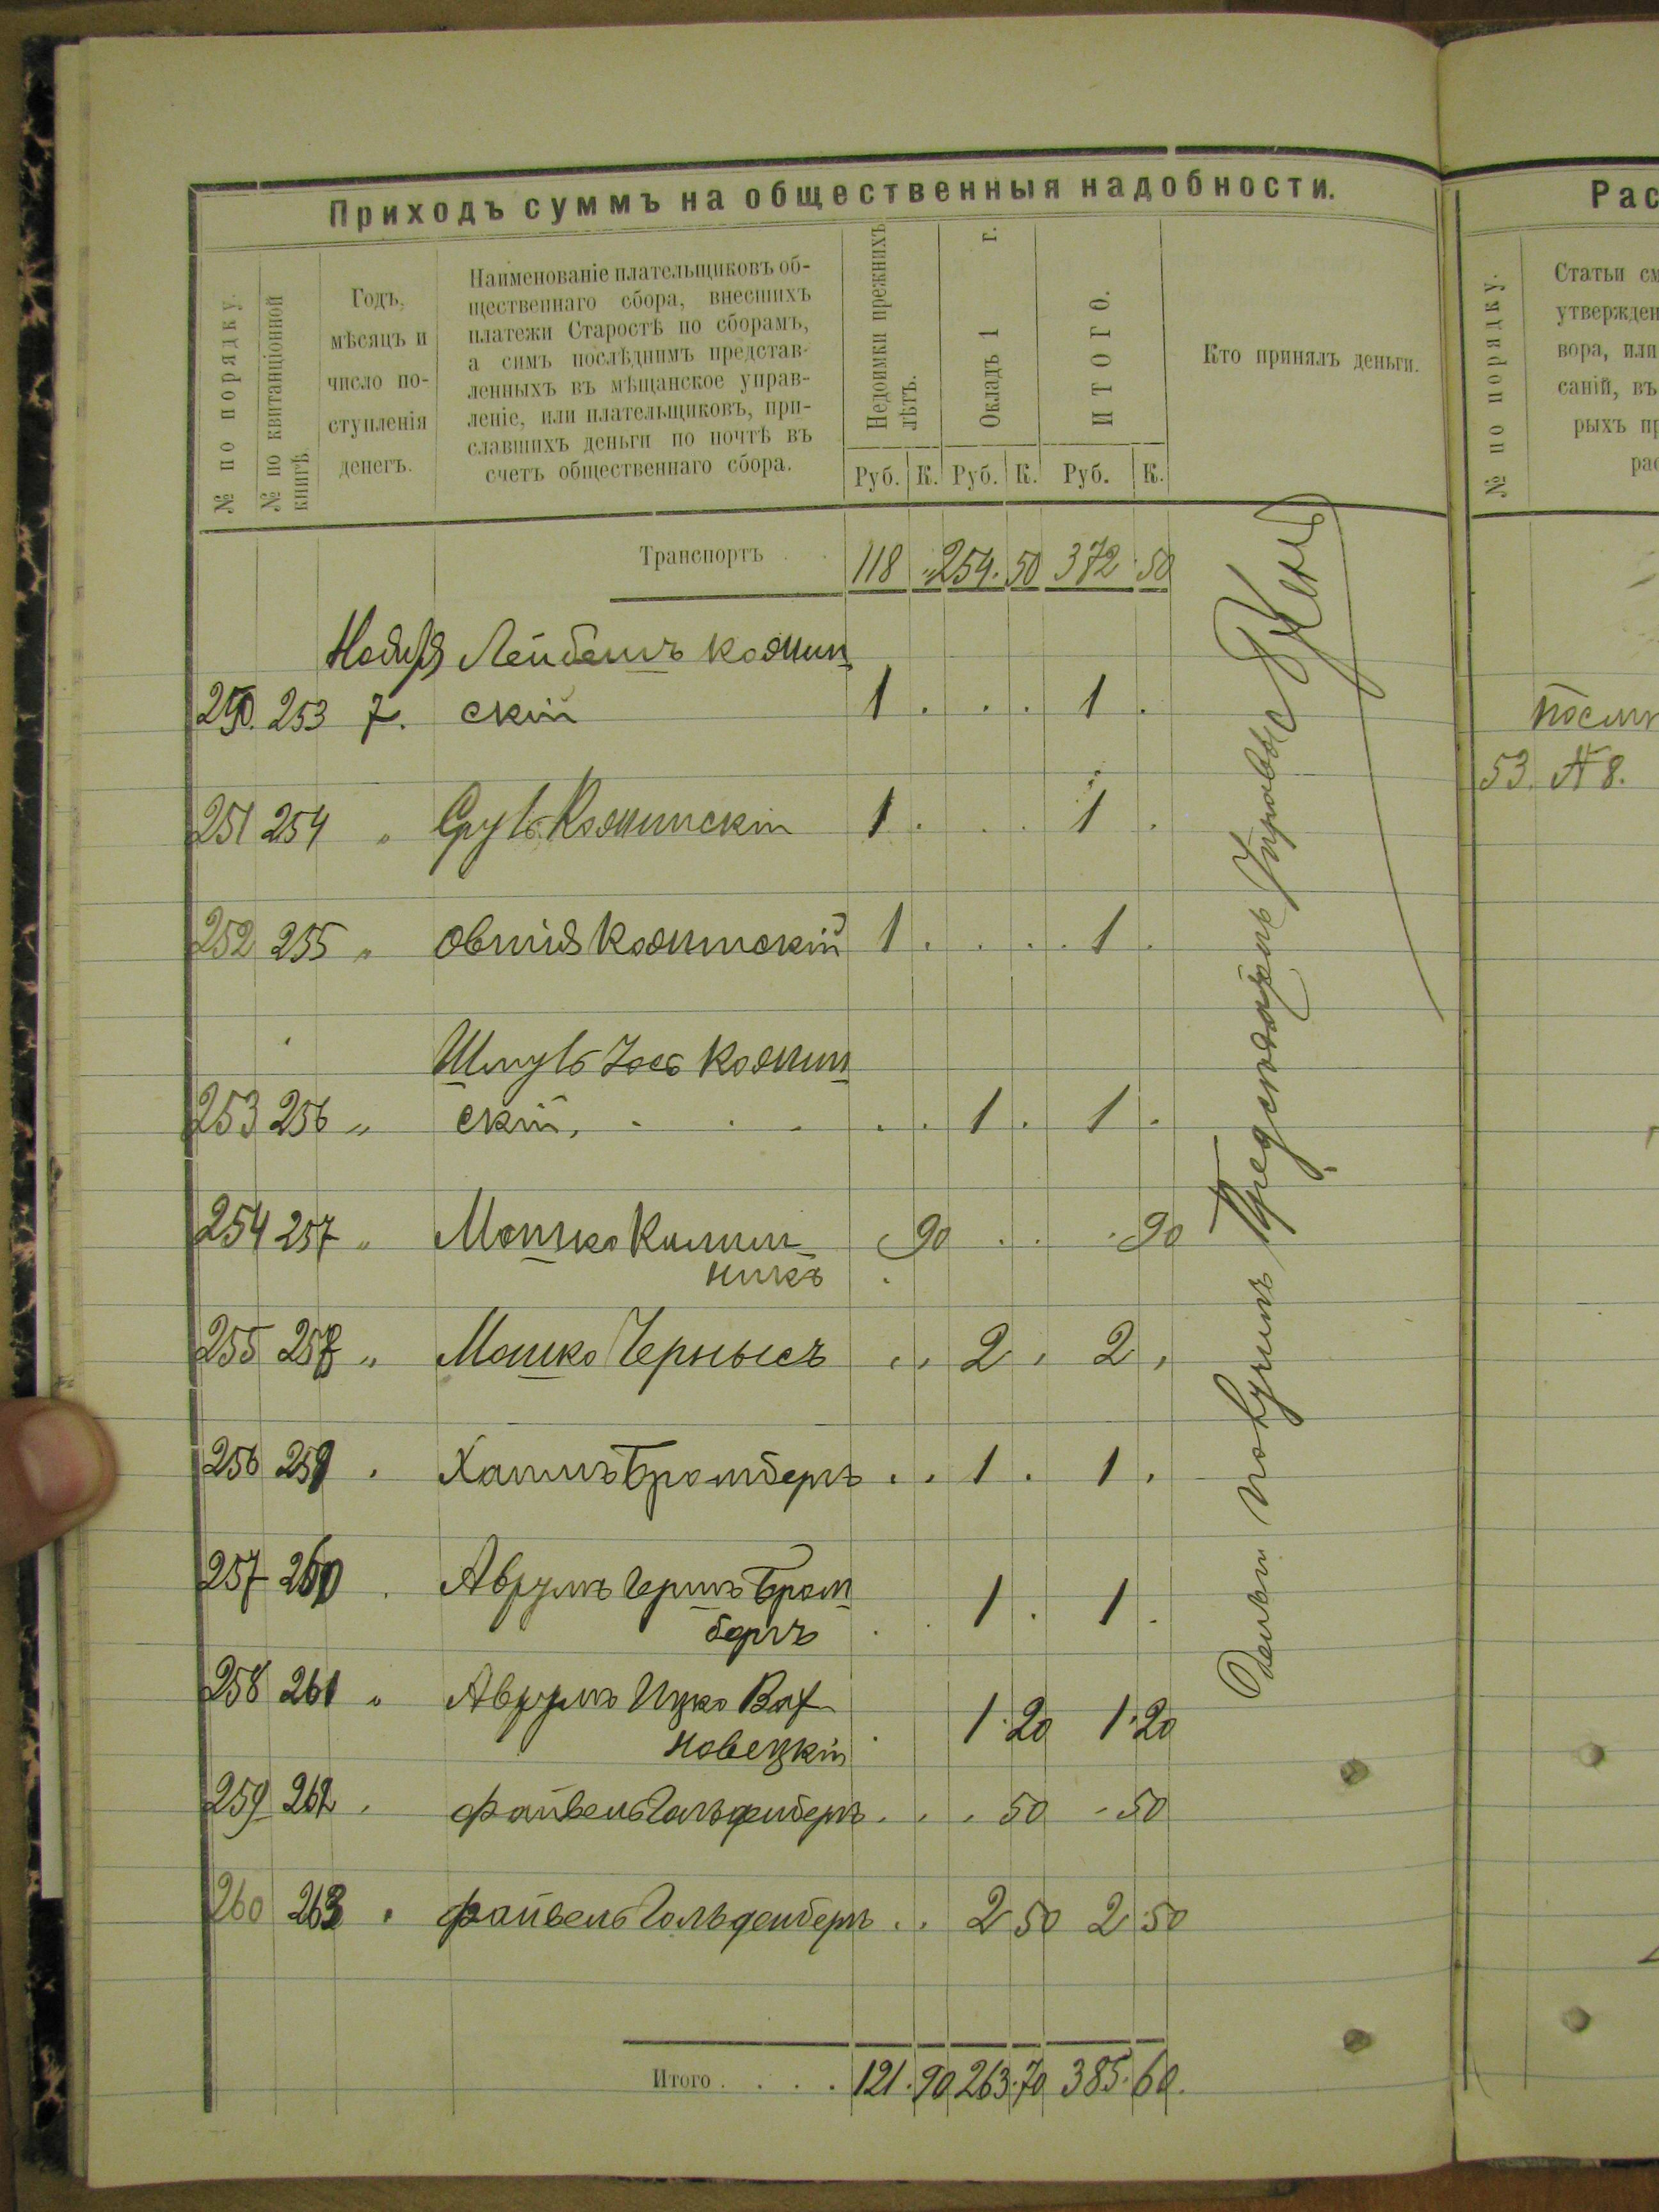 Приходъ суммъ на общественныя надобности.
№ по порядку.
№ по квитанціонной
книгѣ.
Годъ,
мѣсяцъ и
число по-
ступленія
денегъ.
Наименованіе плательщиковъ об-
щественнаго сбора, внесшихъ
платежи Старостѣ по сборамъ,
а симъ послѣднимъ представ-
ленныхъ въ мѣщанское управ-
леніе, или плательщиковъ, при-
славшихъ деньги по почтѣ въ
счетъ общественнаго сбора.
Недоимки прежнихъ
лѣтъ.
Окладъ 1 г.
ИТОГО.
Кто принялъ деньги.
Руб. К. Руб. К. Руб. К.
Транспортъ . . 118 „ 254. 50 372 50
Ноября Лейбешъ Козмин
250. 253 7. скій 1 . . . 1 .
251 254 „ Сруль Козминскій 1 . . . 1 .
252 255 „ Овшія Козминскій 1 . . . 1 .
Шмуль Іось Козмин
253 256 „ скій. . . . . . 1 . 1 .
254 257 „ Мошко 90 . . . 90
никъ
255 258 „ Мошко Чернысъ . . 2 . 2 .
256 259 . Хаимъ Бромбергъ . . 1 . 1 .
257 260 . Аврумъ Гершъ Бром
бергъ . . 1 . 1 .
258 261 „ Аврумъ Ицко Вах
новецкій . 1. 20 1. 20
259 262 . Файвель Гольденбергъ . . . 50 - 50
260 263 . Файвель Гольденбергъ . . 2 50 2 50
Итого . . . . 121. 90 263. 70 385. 60.
Деньги получилъ Предсѣдатель Управы
Рас
№ по порядку.
Статьи см
утвержден
вора, или
саній, въ
рыхъ пр
рас
53. № 8.